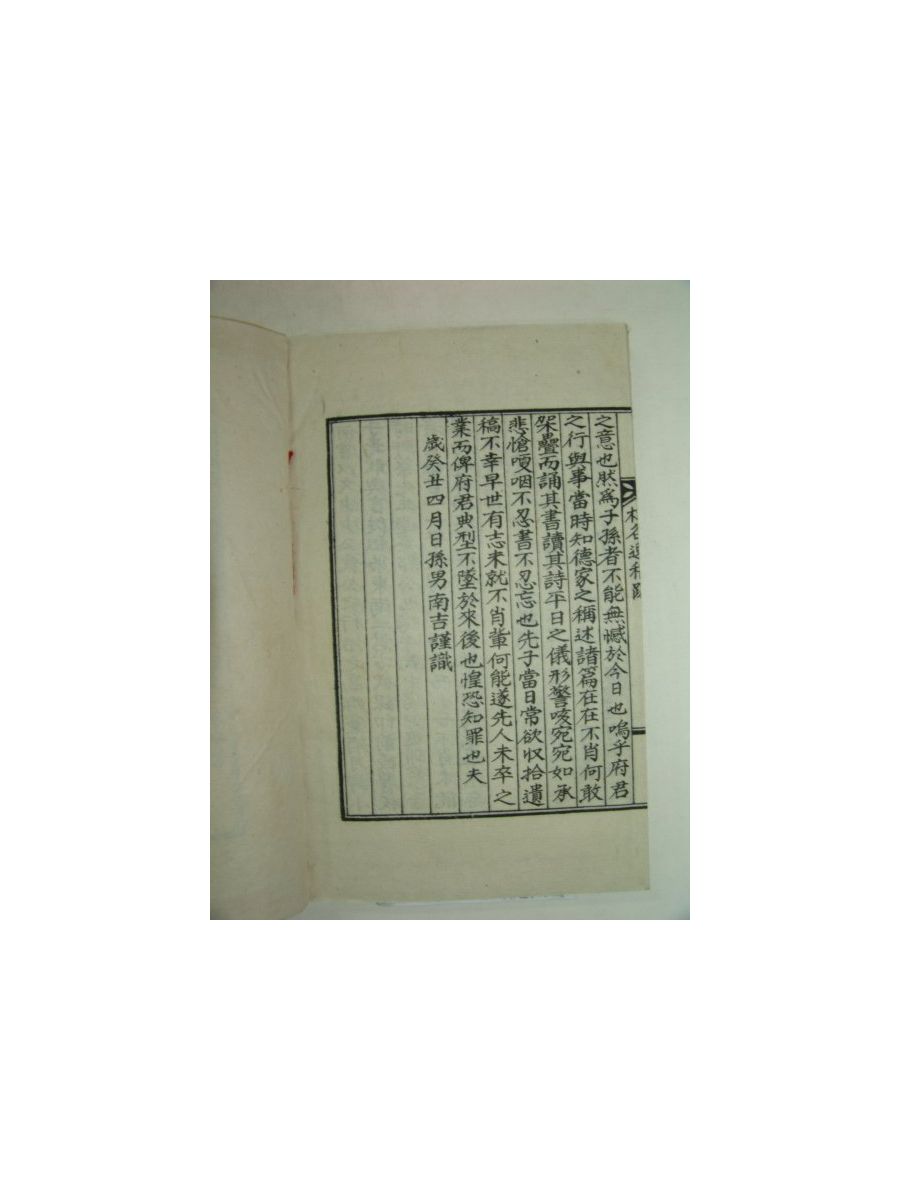 之意也然爲子孫者不能無憾於今日也嗚乎府君
之行與事當時知德家之稱述諸篇在在不肖何敢
架疊而誦其書讀其詩平日之儀形警咳宛宛如承
悲愴哽咽不忍書不忍忘也先子當日常欲収拾遺
稿不幸早世有志未就不肖軰何能遂先人未卒之
業而俾府君典型不墜於來後也惶恐知罪也夫
歲癸丑四月日孫男南吉謹識